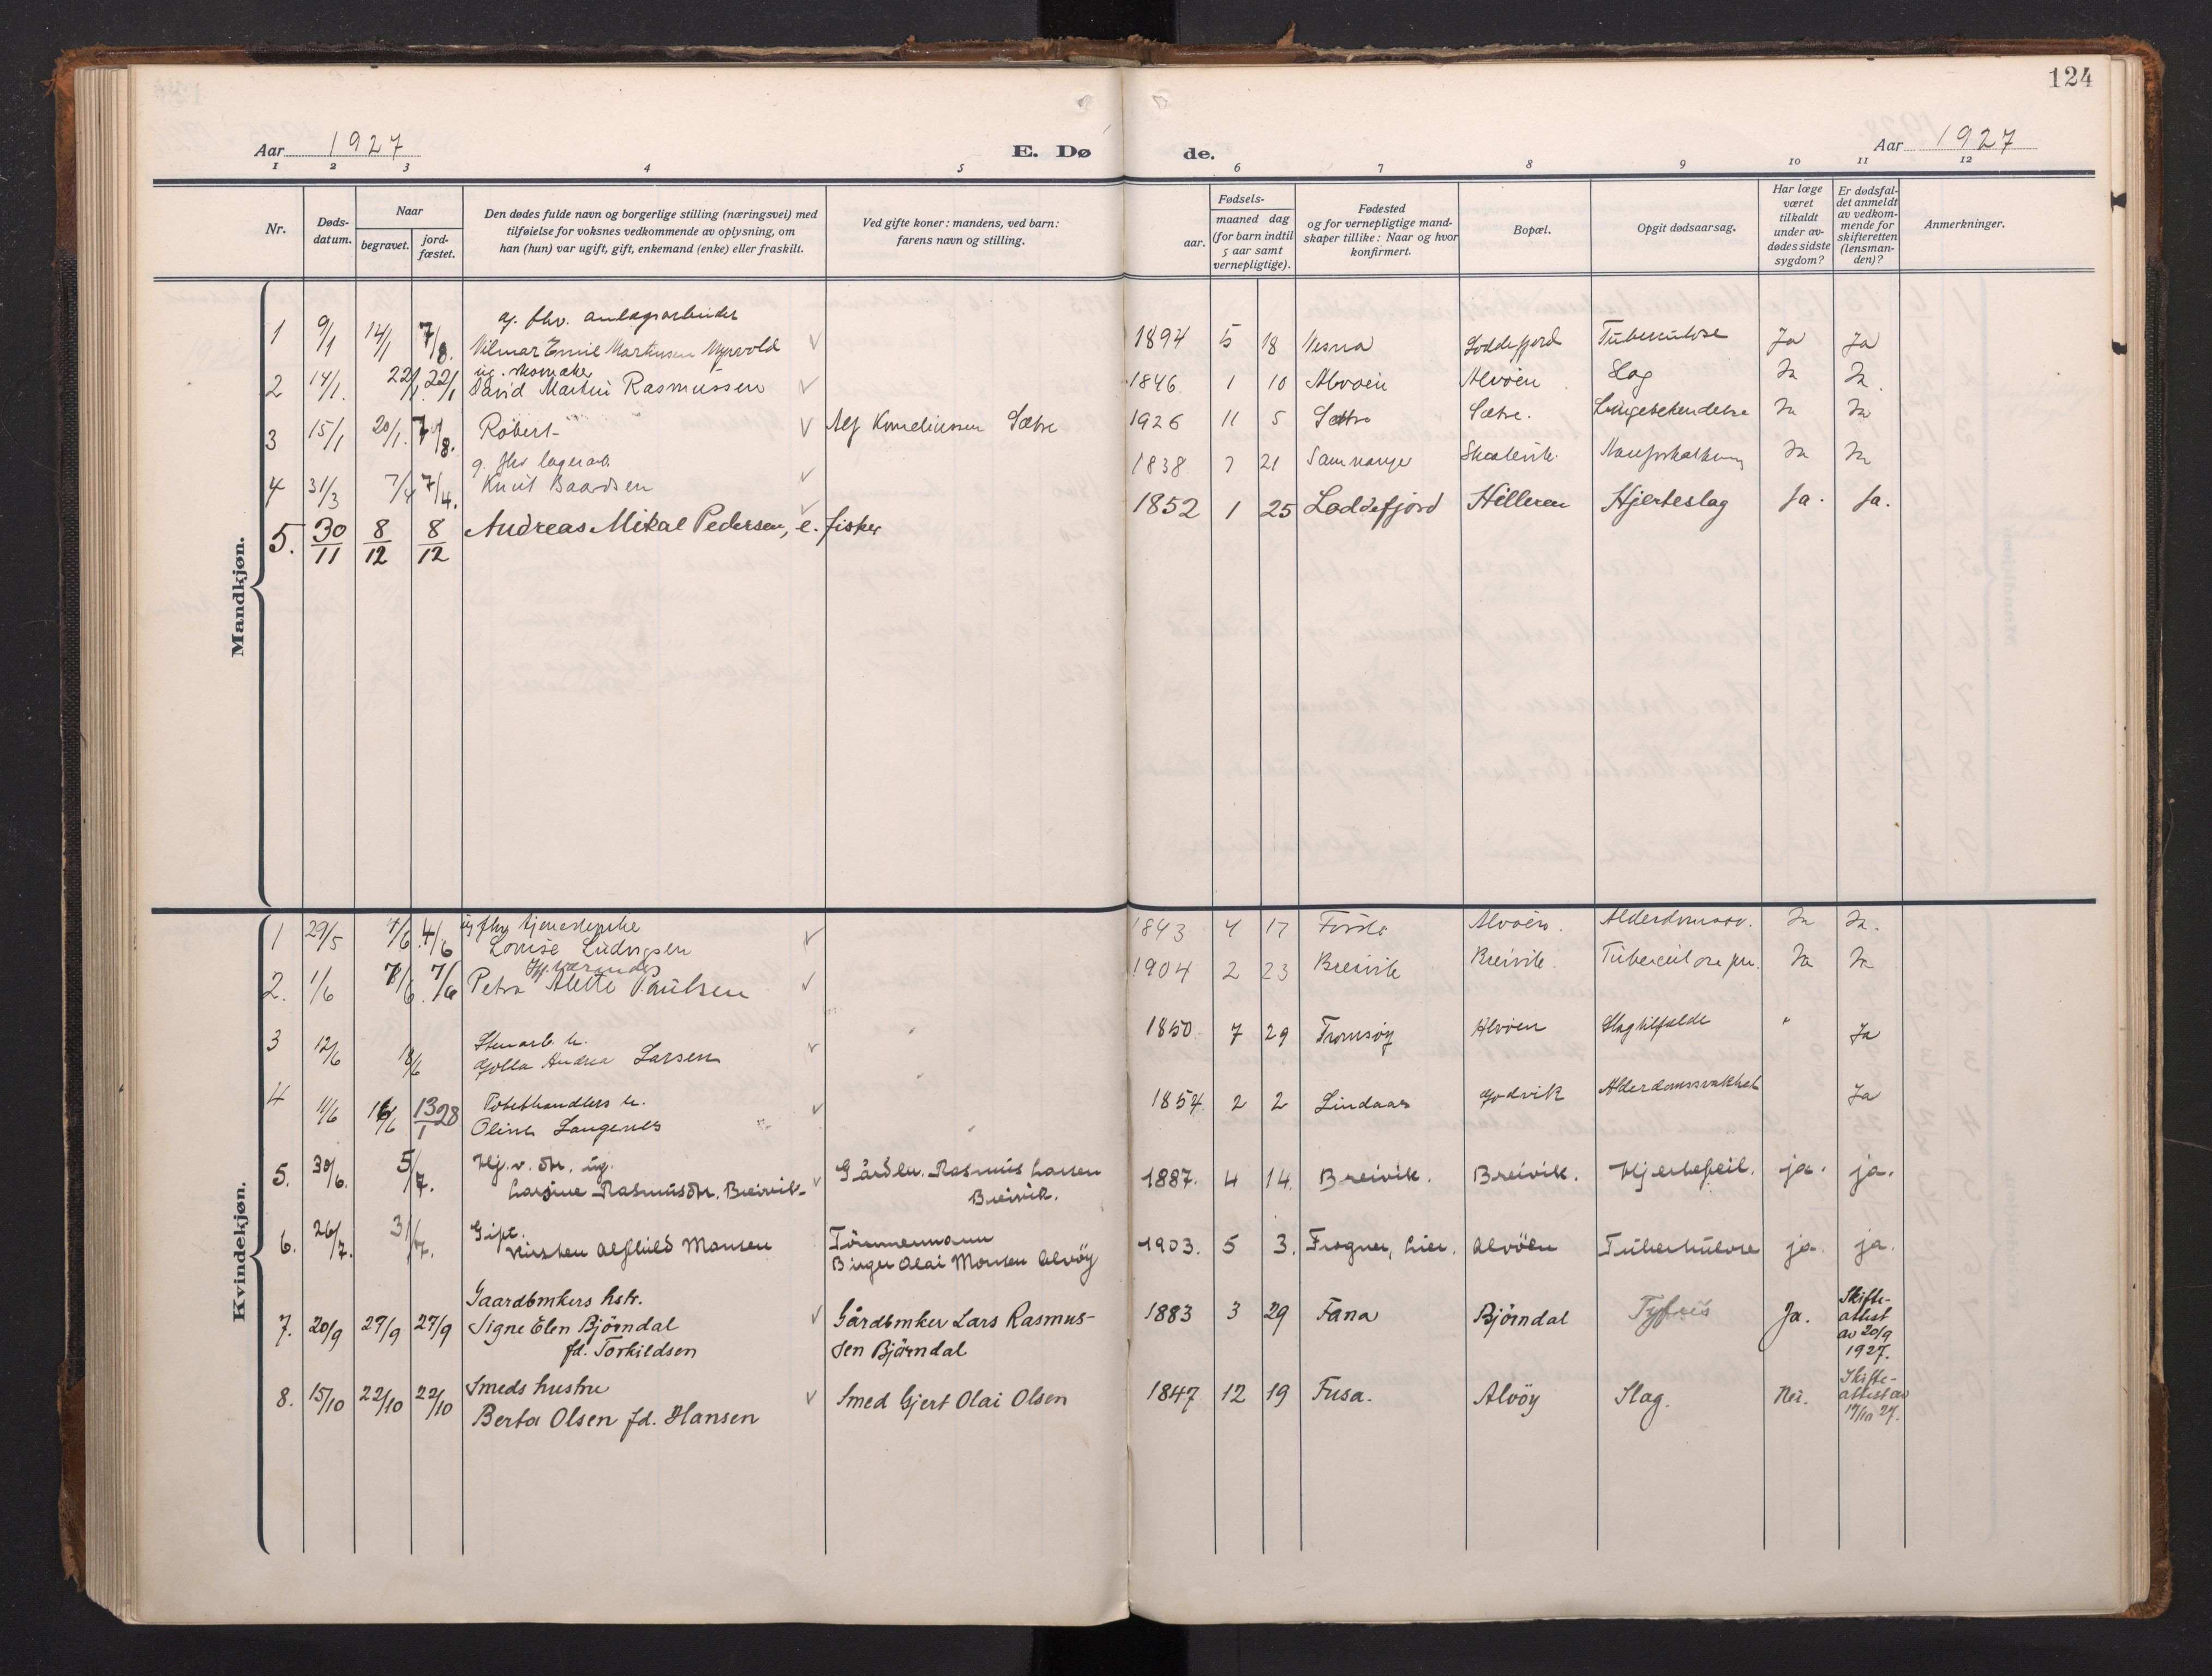 124
Aar 1927
E. Dø
de.
Aar 1927
1 2 3 4 5 6 7 8 9 10 11 12
Nr.
Døds-
datum.
Naar
begravet.
jord-
fæstet.
Den dødes fulde navn og borgerlige stilling (næringsvei) med
tilføielse for voksnes vedkommende av oplysning, om
han (hun) var ugift, gift, enkemand (enke) eller fraskilt.
Ved gifte koner: mandens, ved barn:
farens navn og stilling.
Fødsels-
aar.
maaned dag
(for barn indtil
5 aar samt
vernepligtige).
Fødested
og for vernepligtige mand-
skaper tillike: Naar og hvor
konfirmert.
Bopæl.
Opgit dødsaarsag.
Har læge
været
tilkaldt
under av-
dødes sidste
sygdom?
Er dødsfal-
det anmeldt
av vedkom-
mende for
skifteretten
(lensman-
den)?
Anmerkninger.
Mandkjøn.
g. fhv. anlægsarbeider
1 9/1 14/1 7/8. Vilmar Emil Martinsen Myrvold 1894 5 18 Vesna Loddefjord Tuberculose Ja Ja
ug. skomaker
2 14/1. 22/1. 22/1 David Martin Rasmussen 1846 1 10 Alvøen Alvøen Slag Ja Ja.
3 15/1 20/1. 7/8. Robert Alf Korneliussen Sætre 1926 11 5 Sætre Sætre. Ja Ja
g. fhv lagerarb.
4 31/3 7/4 7/4. Knut Baardsen 1838 7 21 Samnanger Skaalevik Ja Ja
5. 30/11 8/12 8/12 Andreas Mikal Pedersen, e. fisker 1852 1 25 Loddefjord Hilleren Hjerteslag Ja. Ja.
Kvindekjøn.
ug fhv tjenestepike
1 29/5 4/6 4/6 Lovise Ludvigsen 1843 4 17 Førde Alvøen. Alderdomssv. Ja Ja.
Hj. værende
2. 1/6 7/6 7/6 Petra Alette Paulsen 1904 2 23 Breivik Breivik. Ja Ja
Stenarb. h.
3 12/6 18/6 Golla Andrea Larsen 1850 7 29 Tromsøy Alvøen Slagtilfælde " Ja
h.
4 11/6 16/6 13/1 28 Oline Langenes 1854. 2 2 Lindaas Godvik Alderdomssvakhet Ja
Hj. v. dtr. ug.
5. 30/6. 5/7. Larsine Rasmusdtr. Breivik Gårdbr. Rasmus Larsen
Breivik.
1887. 4 14. Breivik. Breivik. Hjertefeil. ja. ja.
Gift.
6. 26/7. 31/7. Kirsten Alfhild Monsen Tömmermann
Birger Olai Monsen Alvöy
1903. 5 3. Frogner, Lier. Alvöen Tuberkulose ja. ja.
Gaardbrukers hstr.
7. 20/9 27/9 27/9 Signe Elen Björndal
fd. Torkildsen
Gårdbruker Lars Rasmus-
sen Björndal
1883 3 29 Fana Björndal Tyfus Ja. Skifte-
attest
av 20/9
1927.
8. 15/10 22/10 22/10 Smeds hustru
Berta Olsen fd. Hansen
Smed Gjert Olai Olsen
1847 12 19 Fusa. Alvöy Slag. Nei. Skifte-
attest av
17/10 27.